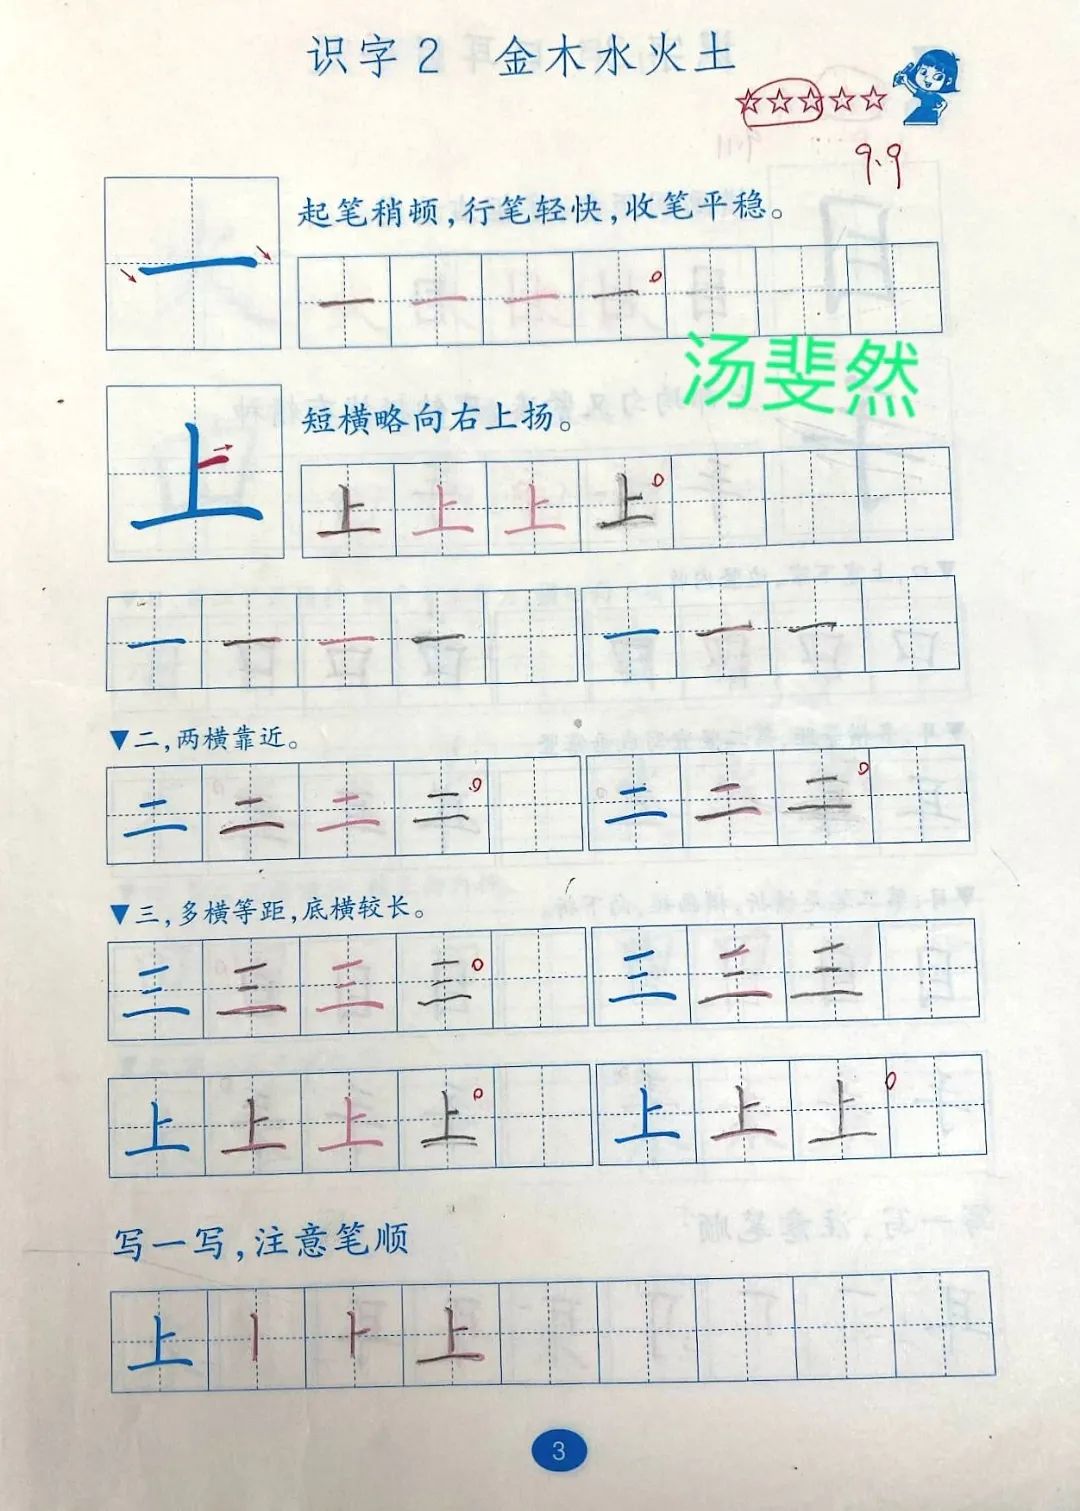 识字2 金木水火土
☆☆☆☆☆
9.9
一 起笔稍顿,行笔轻快,收笔平稳。
一 一 一 一
汤斐然
上 短横略向右上扬。
上 上 上 上
一 一 一 一 一 一 一
▼二,两横靠近。
二 二 二 二 二 二 二
▼三,多横等距,底横较长。
三 三 三 三 三 三 三
上 上 上 上 上 上 上
写一写,注意笔顺
上 丨 ⺊ 上
3